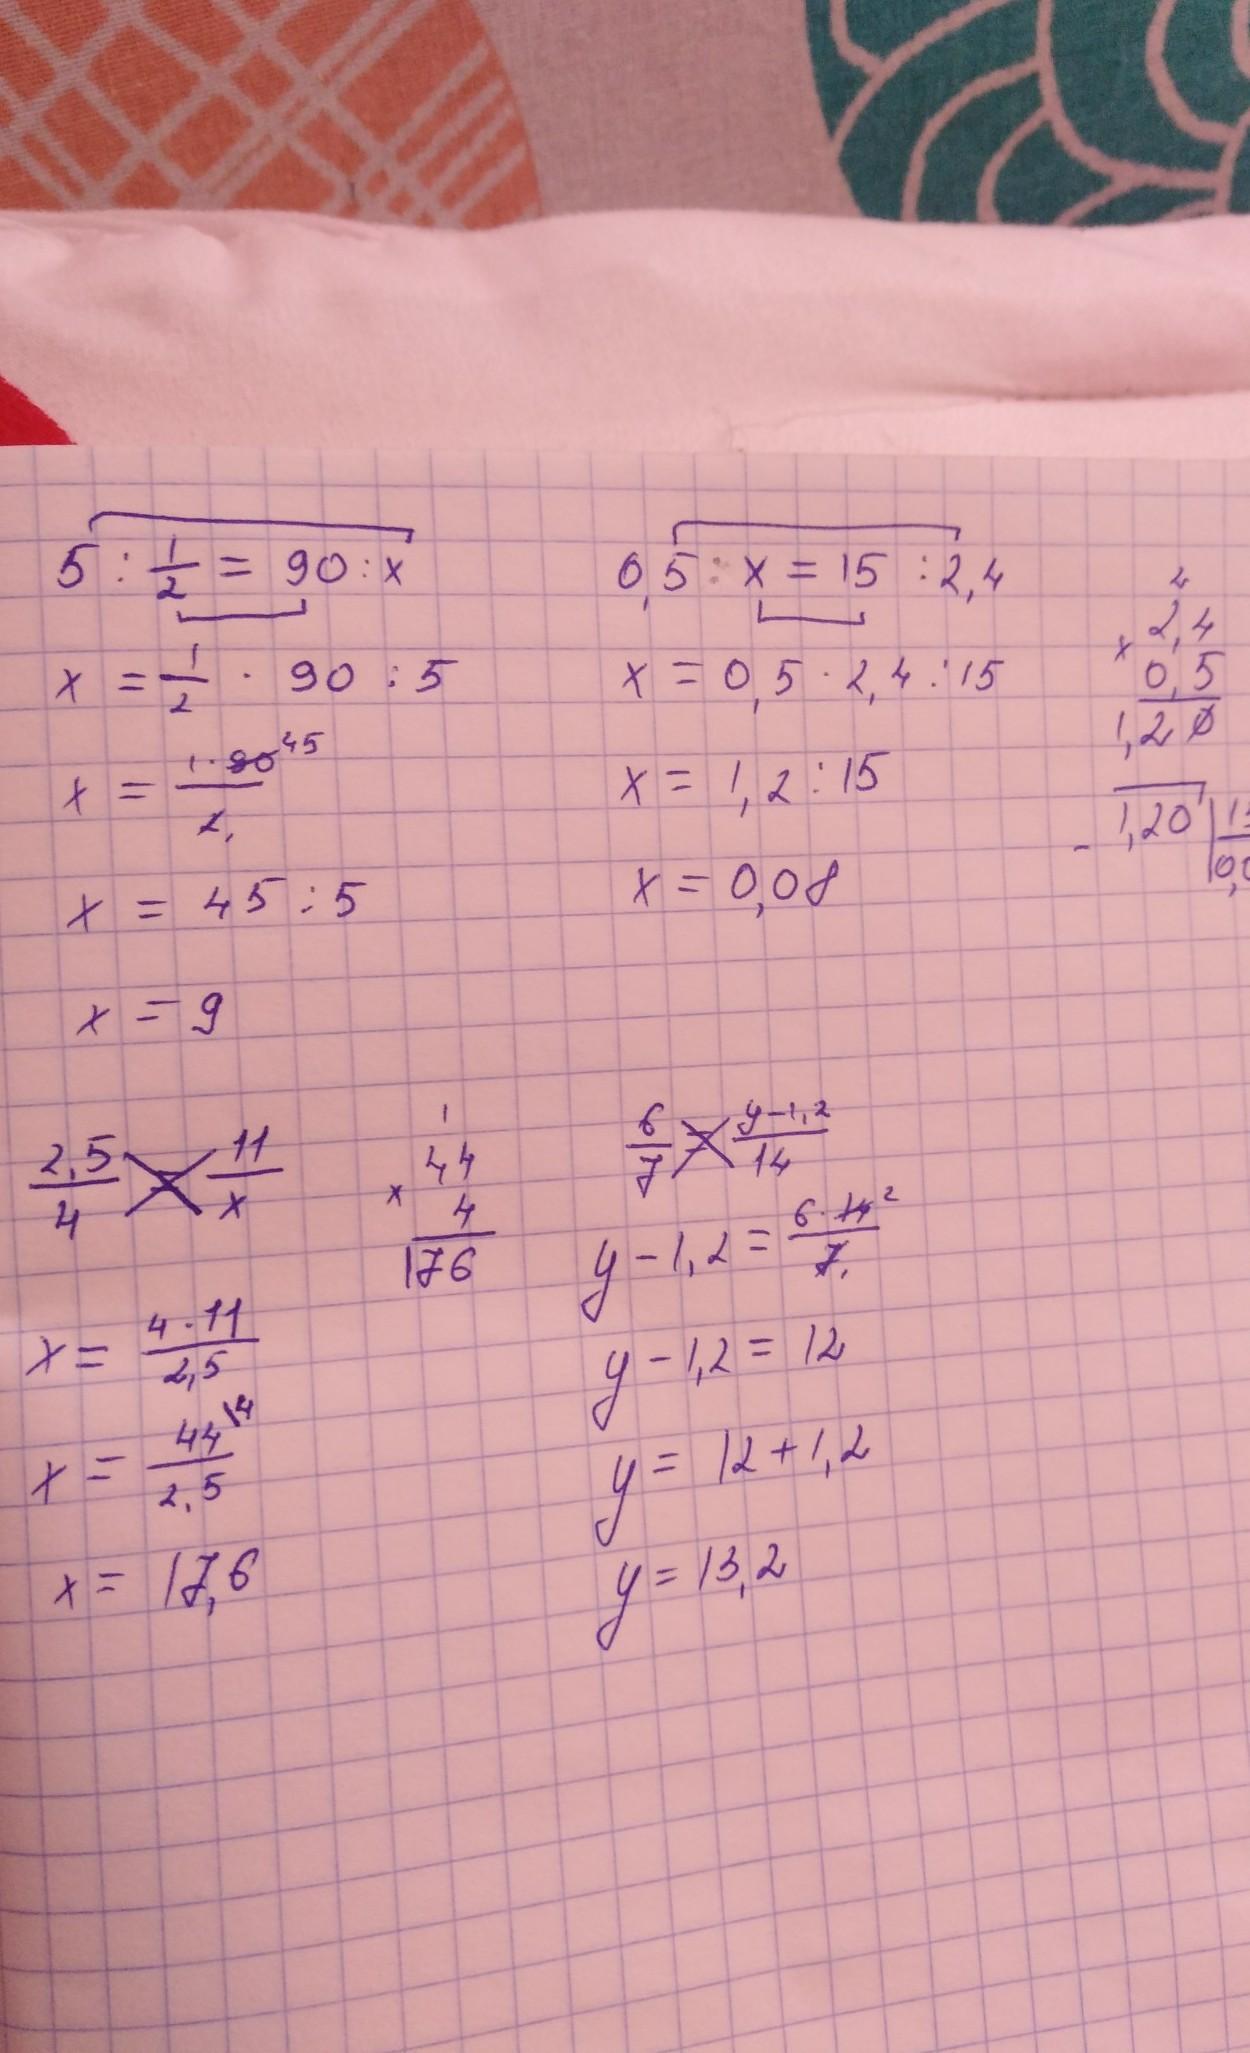 5 : 1/2 = 90 : x
x = 1/2 · 90 : 5
x = 1 · 90 45 / 2 1
x = 45 : 5
x = 9
0,5 : x = 15 : 2,4
x = 0,5 · 2,4 : 15
x = 1,2 : 15
x = 0,08
2
2,4
x 0,5
1,20
- 1,20
2,5/4 = 11/x
x = 4 · 11 / 2,5
x = 44 \4 / 2,5
x = 17,6
1
44
x 4
176
6/7 = y - 1,2 / 14
y - 1,2 = 6 · 14 2 / 7 1
y - 1,2 = 12
y = 12 + 1,2
y = 13,2